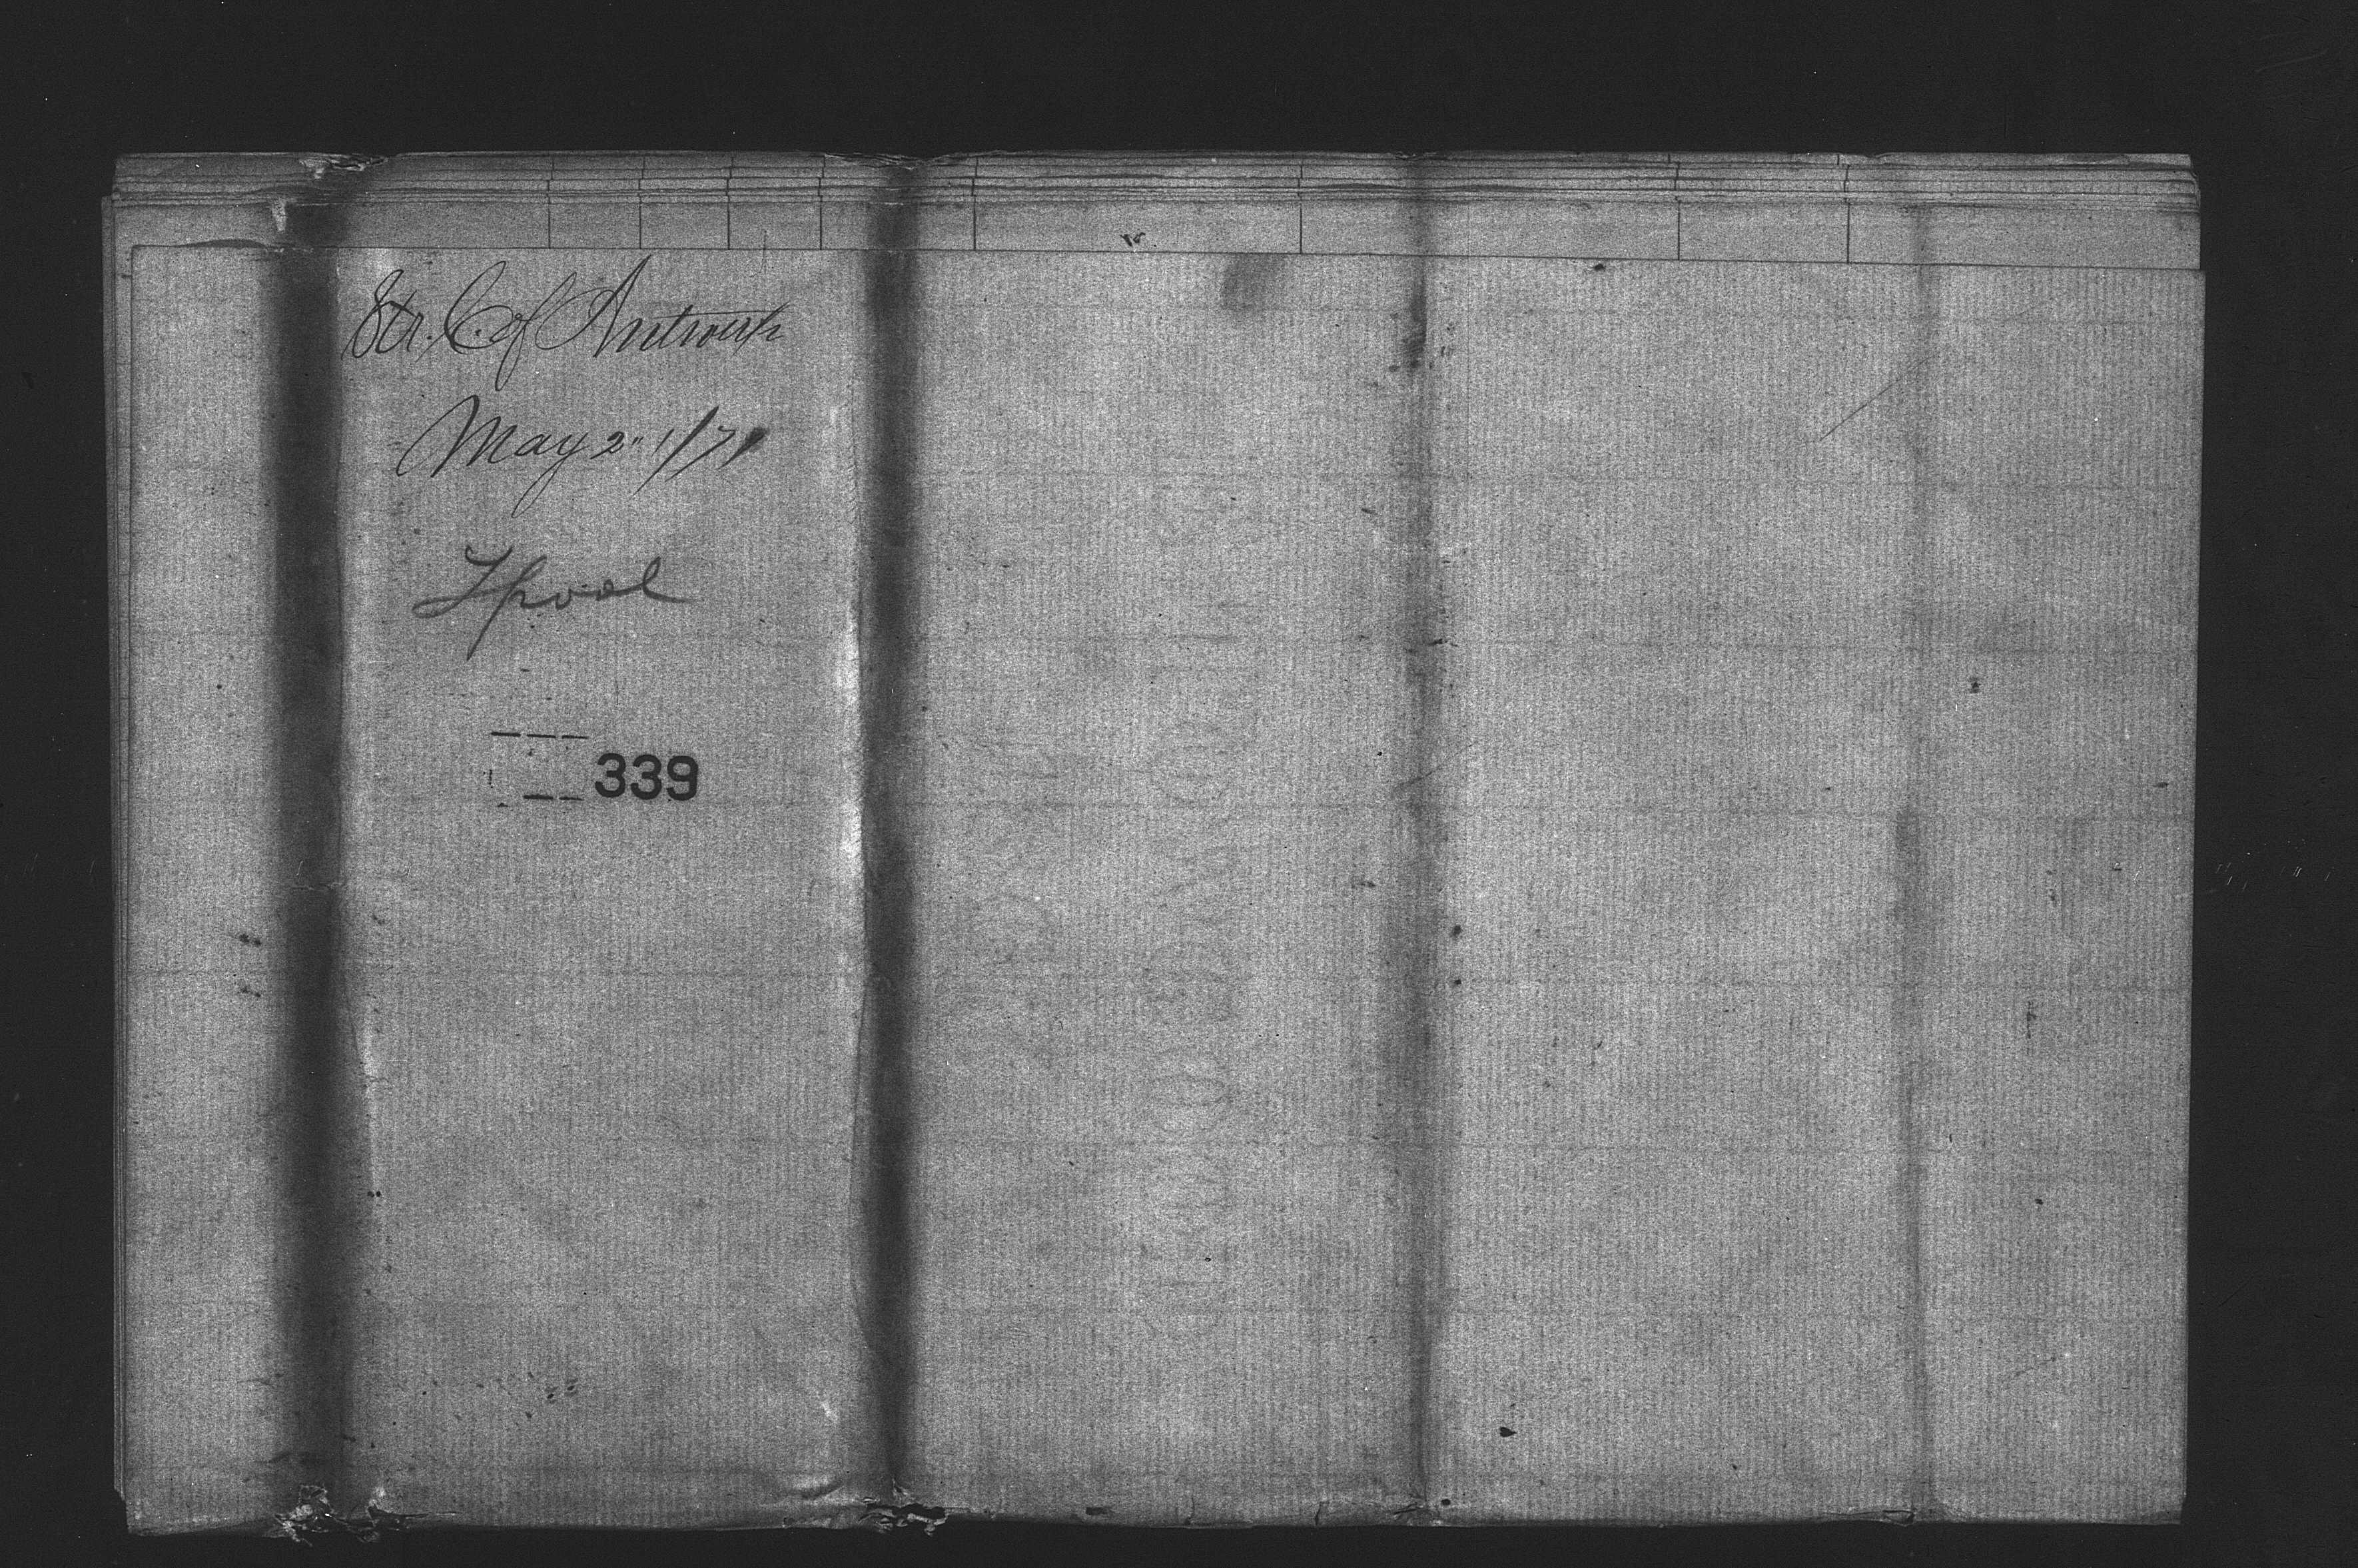 Str. C. of Antwerp
May 2" 1/71
Lpool
339